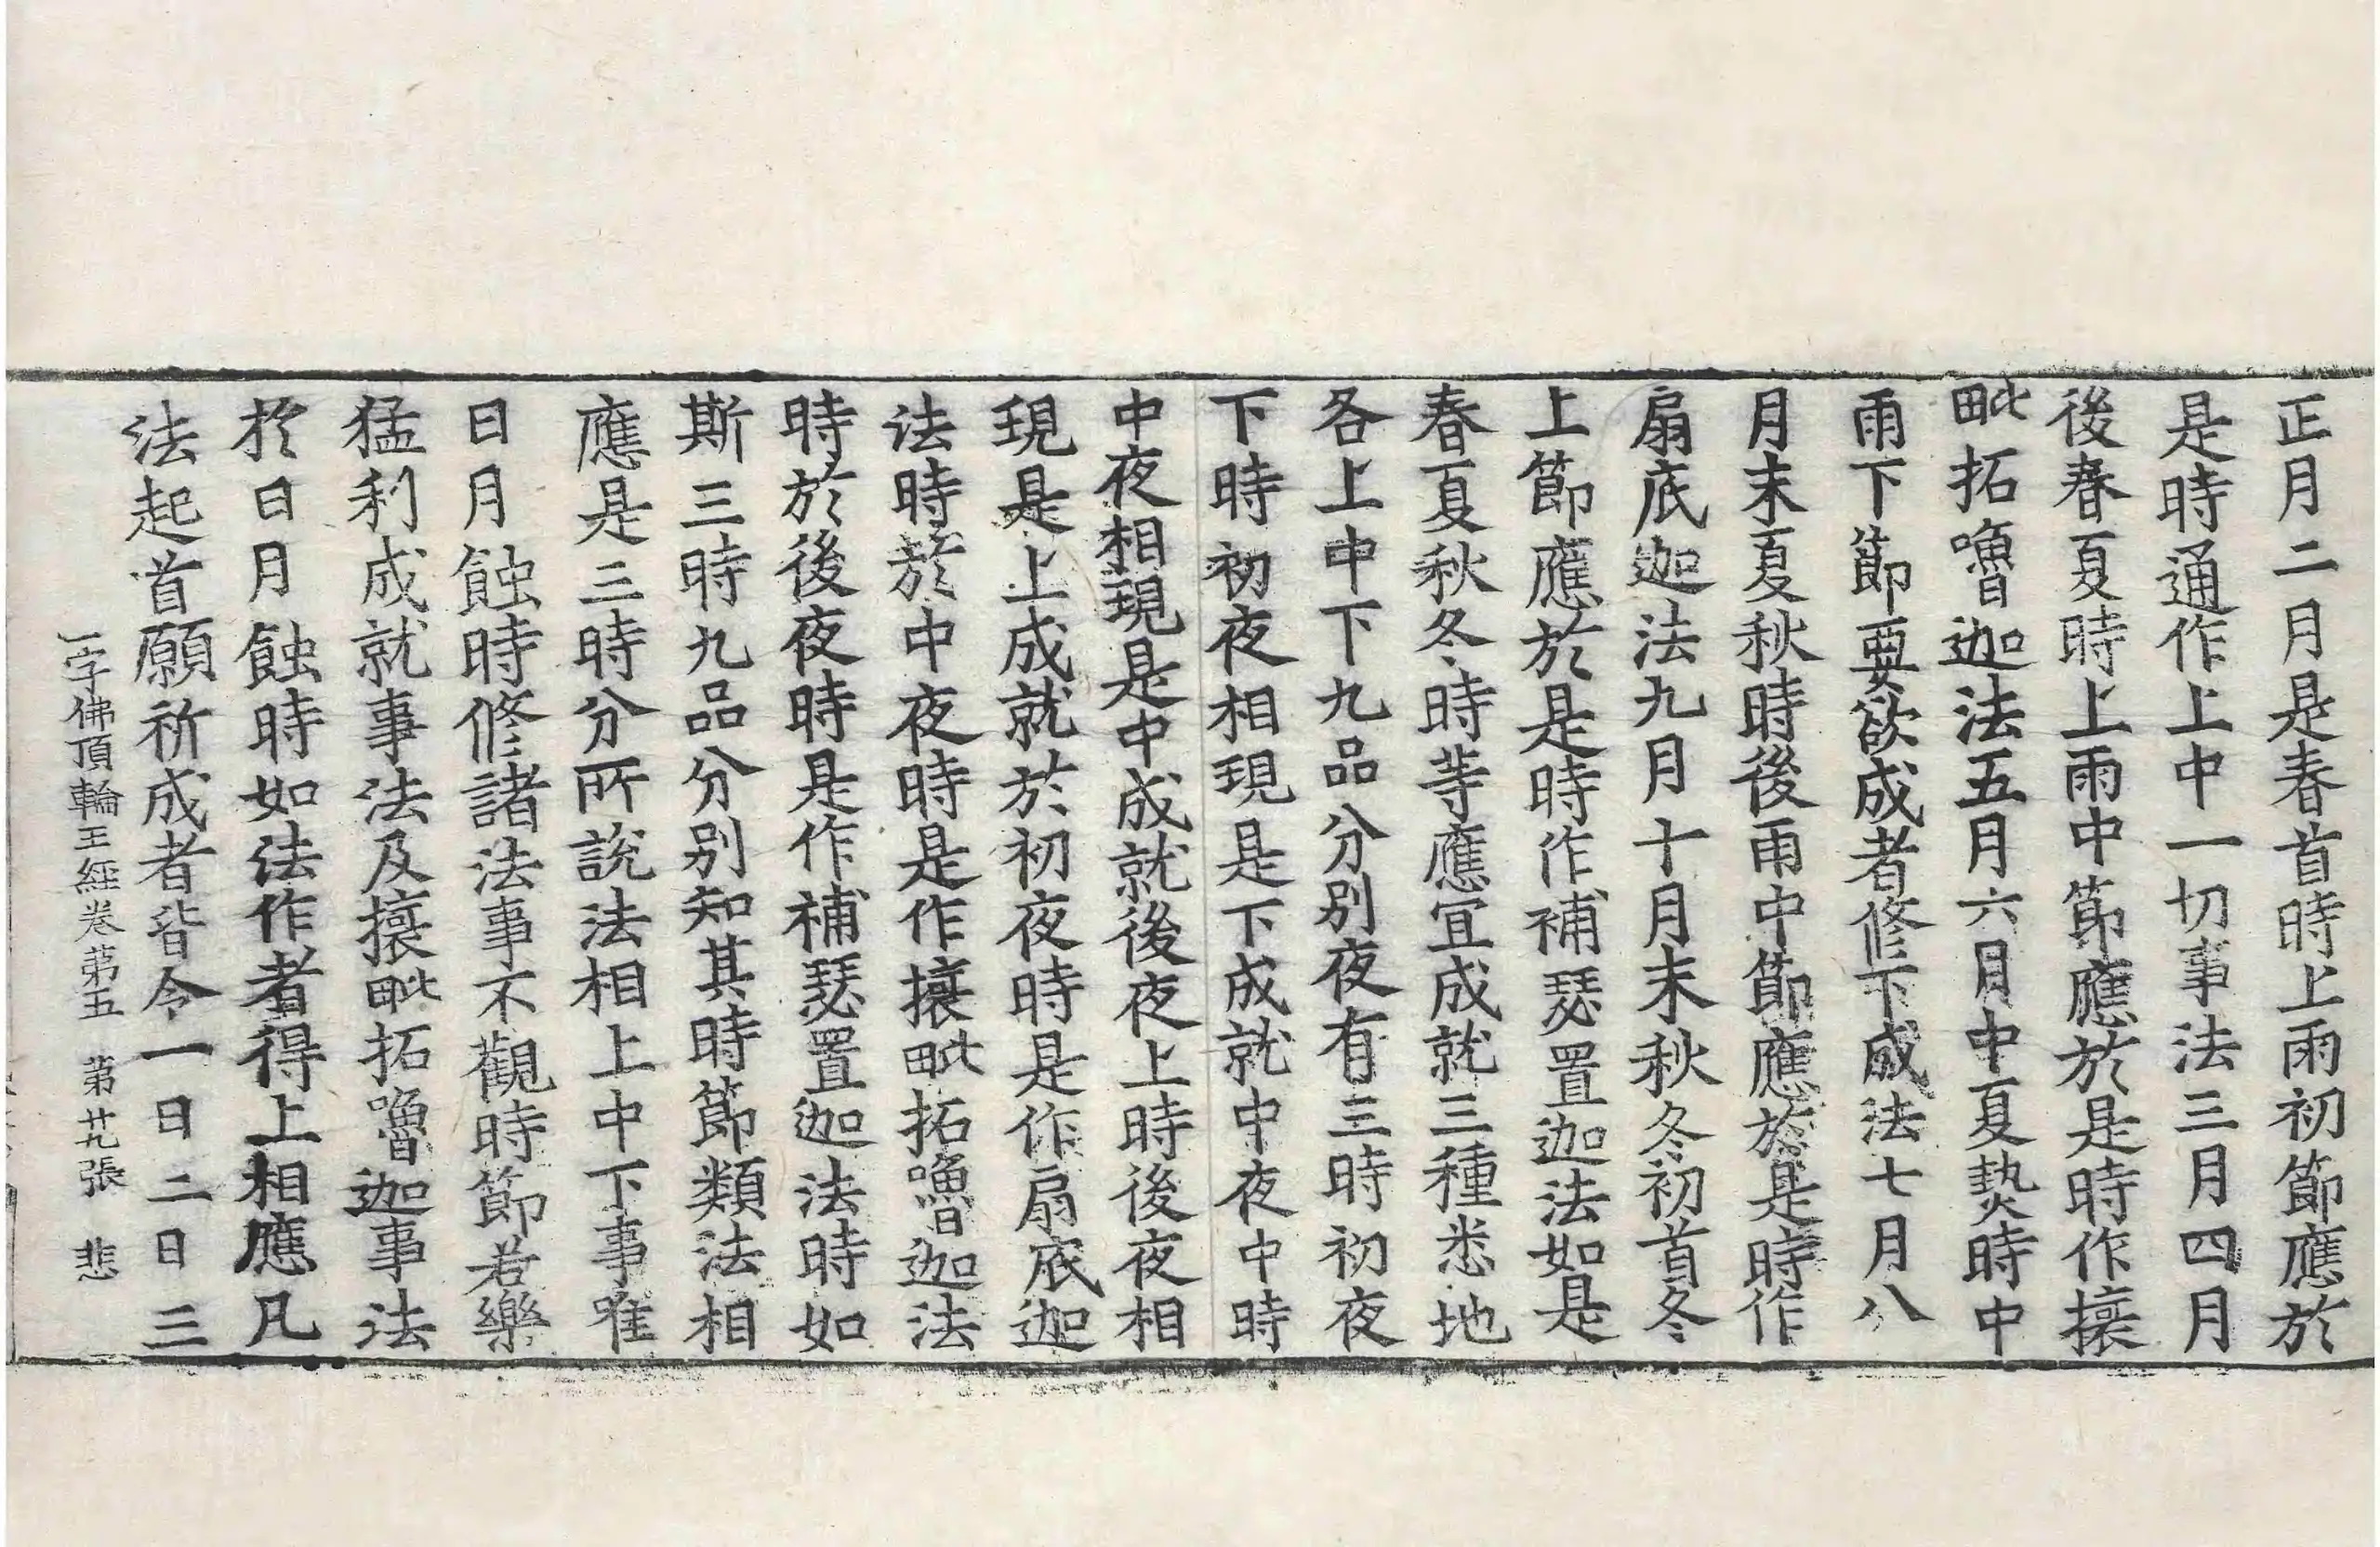 正月二月是春首時上雨初節應於
是時通作上中一切事法三月四月
後春夏時上雨中節應於是時作攘
毗拓嚕迦法五月六月中夏𤍠時中
雨下節要欲成者修下成法七月八
月末夏秋時後雨中節應於是時作
扇底迦法九月十月末秋冬初首冬
上節應於是時作補瑟置迦法如是
春夏秋冬時等應宜成就三種悉地
各上中下九品分別夜有三時初夜
下時初夜相現是下成就中夜中時
中夜相現是中成就後夜上時後夜相
現是上成就於初夜時是作扇底迦
法時於中夜時是作攘毗拓嚕迦法
時於後夜時是作補瑟置迦法時如
斯三時九品分別知其時節類法相
應是三時分所說法相上中下事唯
日月蝕時修諸法事不觀時節若樂
猛利成就事法及攘毗拓嚕迦事法
於日月蝕時如法作者得上相應凡
法起首願祈成者皆令一日二日三
一字佛頂輪王經卷第五 第廿九張 悲